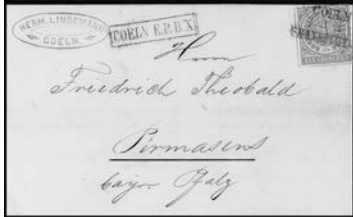 HERM. LINDEMANN
COELN.
COELN E.P.B.X.
COELN
Herrn
Friedrich Theobald
Pirmasens
bayr. Pfalz